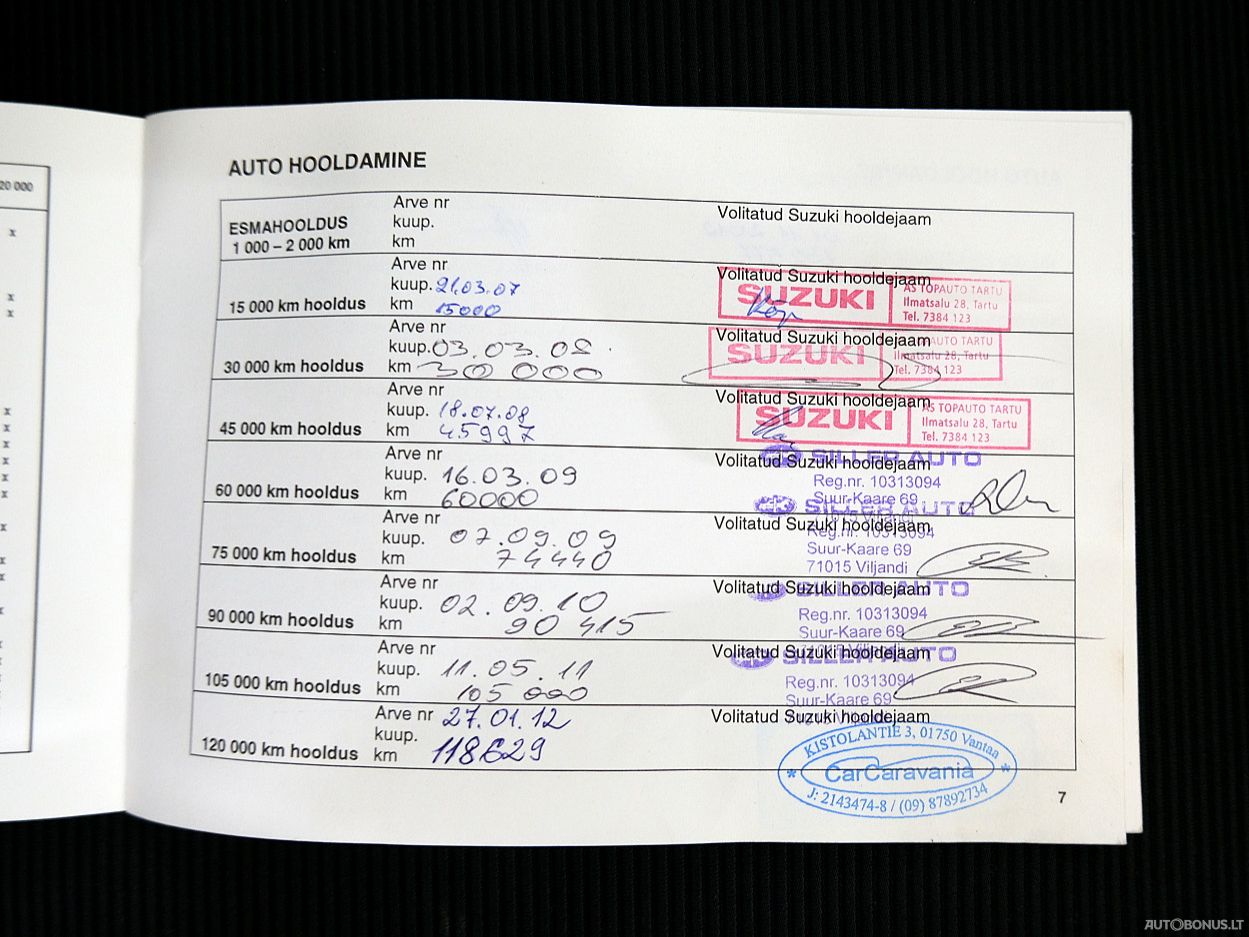 20 000
x
x
x
x
x
x
x
x
x
x
x
x
AUTO HOOLDAMINE
ESMAHOOLDUS
1 000 – 2 000 km
Arve nr
kuup.
km
Volitatud Suzuki hooldejaam
15 000 km hooldus
Arve nr
kuup. 21.03.07
km 15000
Volitatud Suzuki hooldejaam
SUZUKI
AS TOPAUTO TARTU
Ilmatsalu 28, Tartu
Tel. 7384 123
30 000 km hooldus
Arve nr
kuup. 03.03.08
km 30 000
Volitatud Suzuki hooldejaam
SUZUKI
AUTO TARTU
Ilmatsalu 28, Tartu
Tel. 7384 123
45 000 km hooldus
Arve nr
kuup. 18.07.08
km 45997
Volitatud Suzuki hooldejaam
SUZUKI
AS TOPAUTO TARTU
Ilmatsalu 28, Tartu
Tel. 7384 123
60 000 km hooldus
Arve nr
kuup. 16.03.09
km 60000
Volitatud Suzuki hooldejaam
SILLER AUTO
Reg.nr. 10313094
Suur-Kaare 69
75 000 km hooldus
Arve nr
kuup. 07.09.09
km 74440
Volitatud Suzuki hooldejaam
SILLER AUTO
Reg.nr. 10313094
Suur-Kaare 69
71015 Viljandi
90 000 km hooldus
Arve nr
kuup. 02.09.10
km 90 415
Volitatud Suzuki hooldejaam
SILLER AUTO
Reg.nr. 10313094
Suur-Kaare 69
105 000 km hooldus
Arve nr
kuup. 11.05.11
km 105 000
Volitatud Suzuki hooldejaam
SILLER AUTO
Reg.nr. 10313094
Suur-Kaare 69
120 000 km hooldus
Arve nr 27.01.12
kuup.
km 118629
Volitatud Suzuki hooldejaam
KISTOLANTIE 3, 01750 Vantaa
* CarCaravania *
J: 2143474-8 / (09) 87892734
7
AUTOBONUS.LT